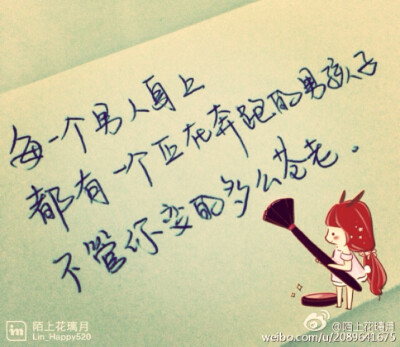 每一个男人身上
都有一个正在奔跑的男孩子
不管你变的多么苍老。
in 陌上花璃月
Lin_Happy520
@陌上花璃月
weibo.com/u/2089641675